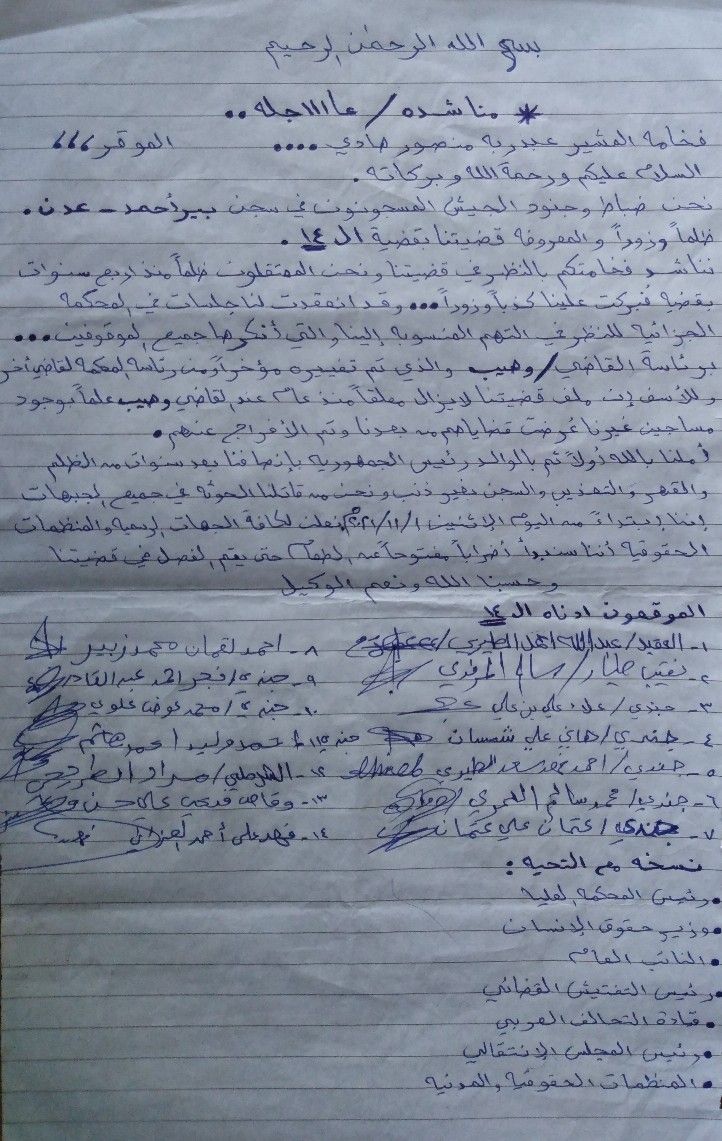 بسم الله الرحمٰن الرحيم
* مناشده / عاااااجله ..
فخامه المشير عبدربه منصور هادي .... الموقر ،،،
السلام عليكم ورحمة الله وبركاته .
نحن ضباط وجنود الجيش المسجونون في سجن بير أحمد - عدن .
ظلماً وزوراً والمعروفه قضيتنا بقضية الـ ١٤ .
نناشد فخامتكم بالنظر في قضيتنا ونحن المعتقلون ظلماً منذ اربع سنوات
بقضيه فبركت علينا كذباً وزوراً ... وقد انعقدت لنا جلسات في المحكمه
الجزائية للنظر في التهم المنسوبه إلينا والتي أنكرها جميع الموقوفين ...
برئاسة القاضي / وهيب والذي تم تغييره مؤخراً من رئاسة المحكمه لقاضي أخر
وللأسف إن ملف قضيتنا لايزال معلقاً منذ عام عند القاضي وهيب علماً بوجود
مساجين غيرنا عُرضت قضاياهم من بعدنا وتم الأفراج عنهم .
أملنا بالله أولاً ثم بالوالد رئيس الجمهوريه بإنصافنا بعد سنوات من الظلم
والقهر والتعذيب والسجن بغير ذنب ونحن من قاتلنا الحوثه في جميع الجبهات
إننا إبتداءً من اليوم الاثنين ٢٠٢١/١١/١م نعلن لكافة الجهات الرسميه والمنظمات
الحقوقيه أننا سنبدأ أضراباً مفتوحاً عن الطعام حتى يتم الفصل في قضيتنا
وحسبنا الله ونعم الوكيل
الموقعون ادناه الـ ١٤
١- العقيد / عبدالله احمد الطيري / ٨- احمد لقمان محمد زبير
٢- نقيب طيار / سالم المرقدي ٩- جندي / فجر احمد عبدالقادر
٣- جندي / علاء علي بن علي ١٠- جندي / محمد عوض علوي
٤- جندي / هاني علي شمسان ١١- جندي / احمد وليد احمد هاشم
٥- جندي / احمد محمد سعد الطيري ١٢- الشرطي / مراد
٦- جندي / محمد سالم العمري ١٣- وقاص فتحي علي حسن
٧- جندي / عثمان علي عثمان ١٤- فهد علي أحمد
نسخه مع التحيه :
• رئيس المحكمه العليا
• وزير حقوق الإنسان
• النائب العام
• رئيس التفتيش القضائي
• قيادة التحالف العربي
• رئيس المجلس الإنتقالي
• المنظمات الحقوقيه والمدنيه